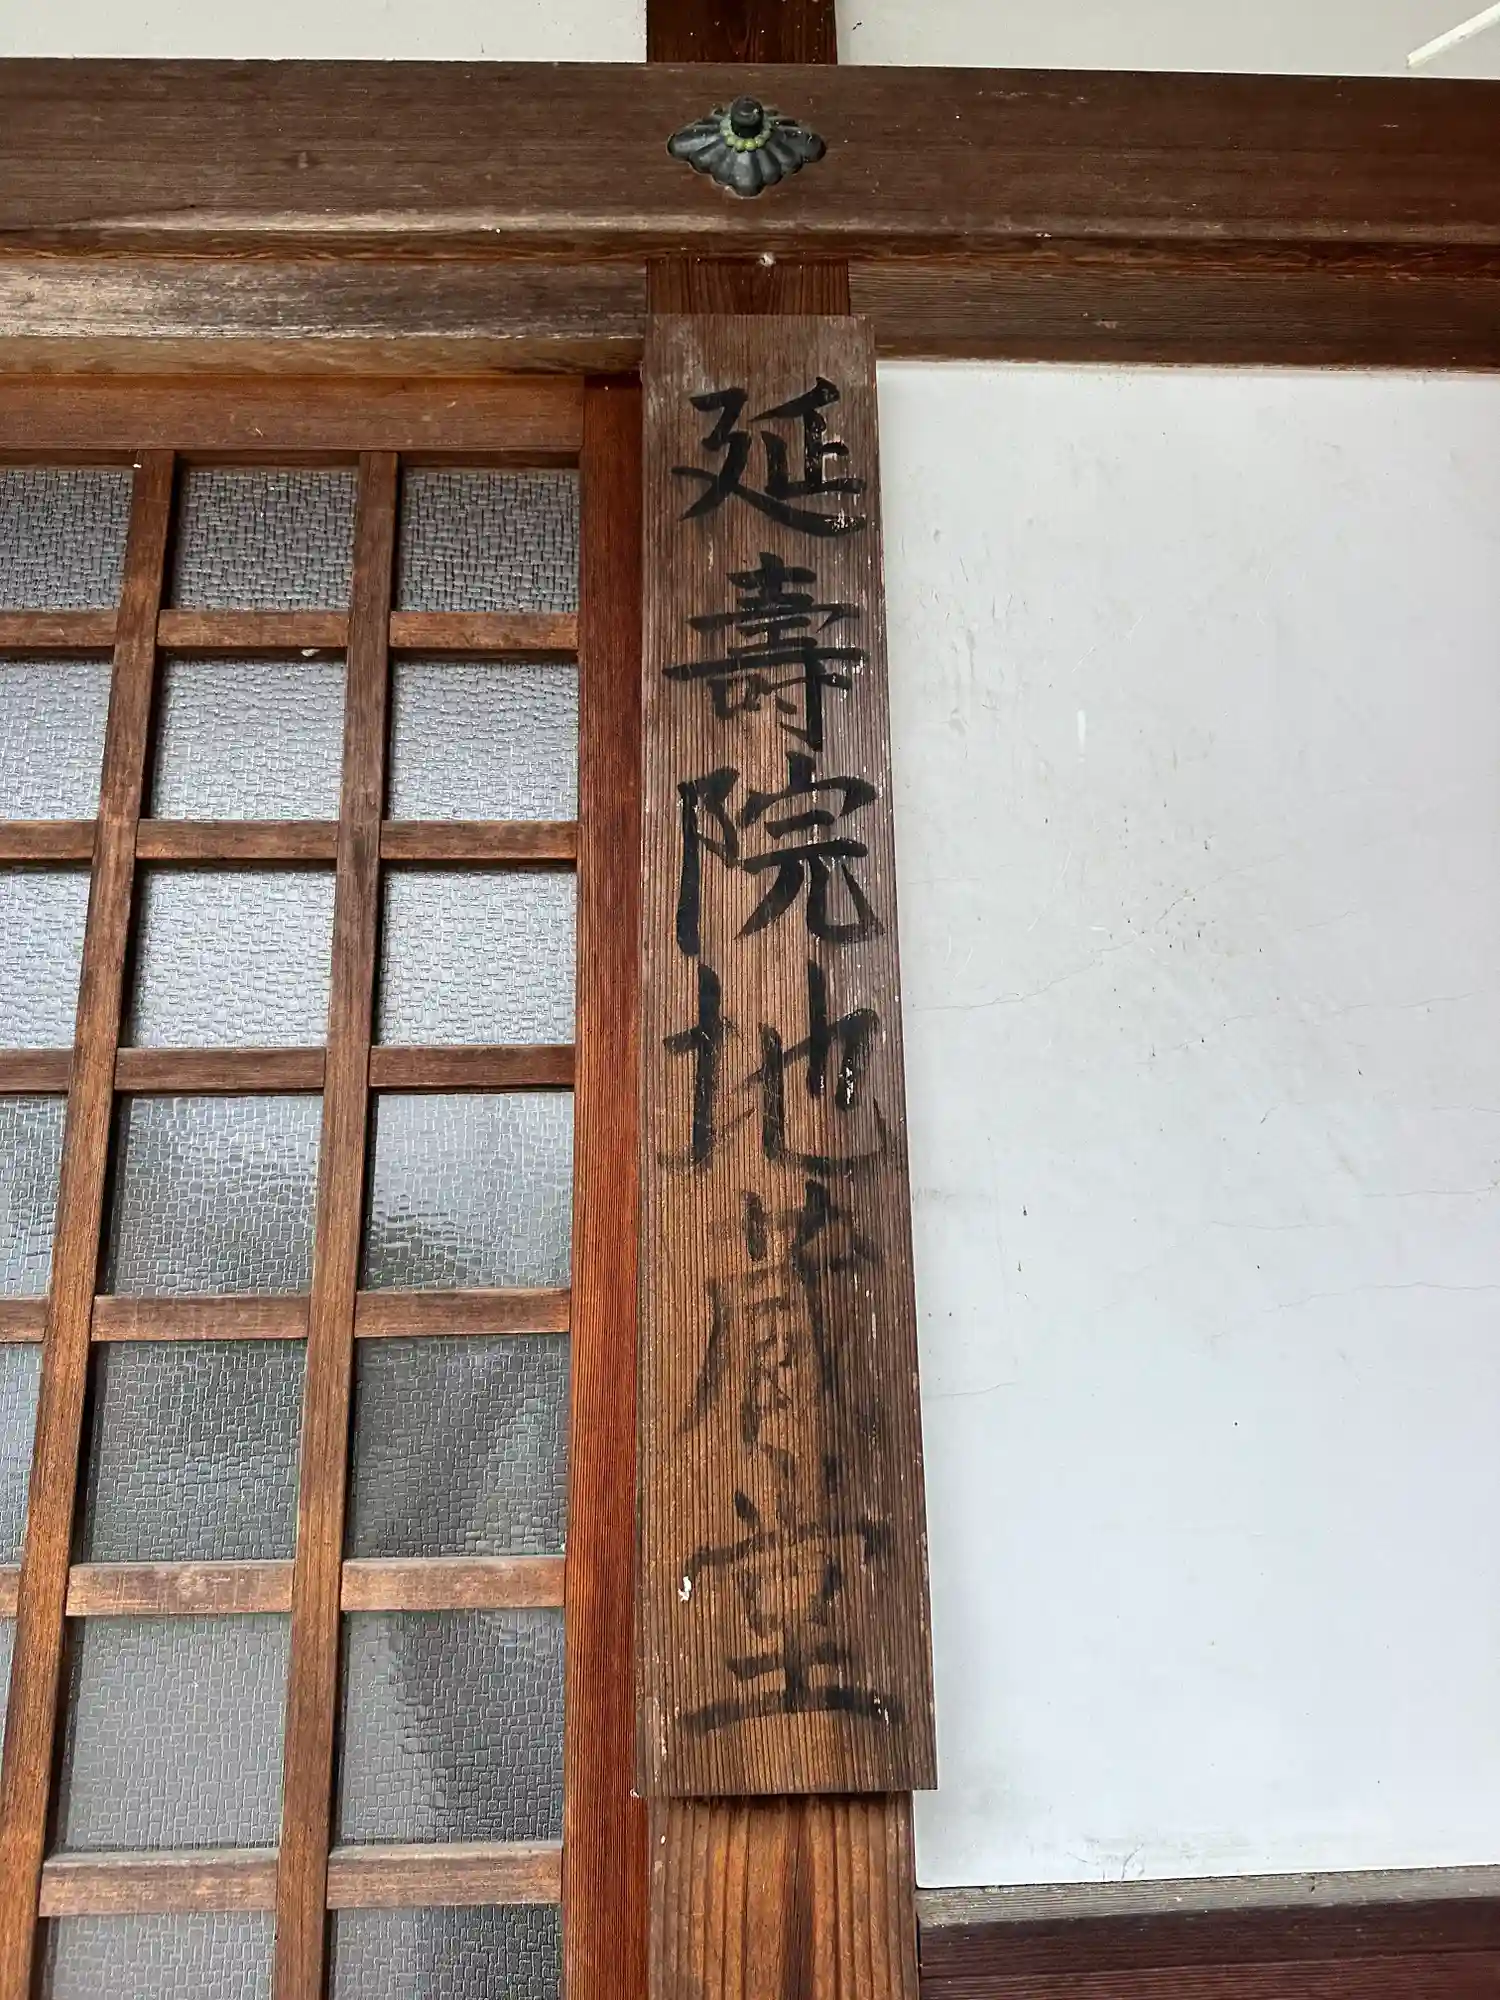 延壽院地蔵堂